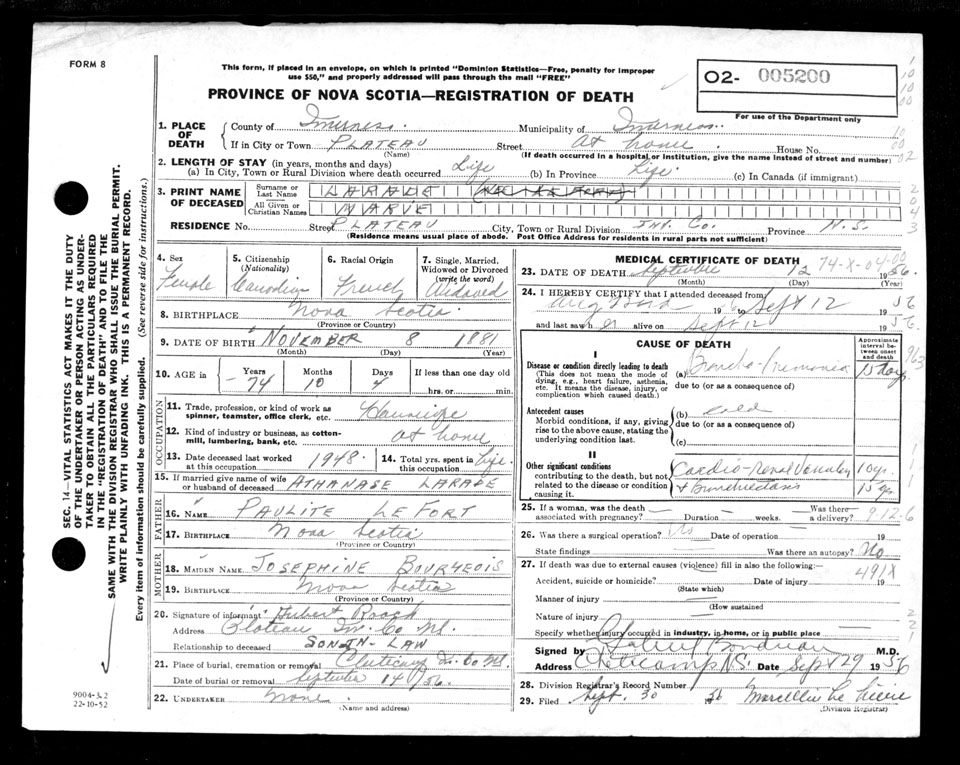 FORM 8
This form, if placed in an envelope, on which is printed "Dominion Statistics—Free, penalty for improper
use $50," and properly addressed will pass through the mail "FREE"
02- 005200
For use of the Department only
PROVINCE OF NOVA SCOTIA—REGISTRATION OF DEATH
1. PLACE OF DEATH
County of Inverness. Municipality of Inverness.
If in City or Town PLATEAU Street At home. House No.
(Name) (If death occurred in a hospital or institution, give the name instead of street and number)
2. LENGTH OF STAY (in years, months and days)
(a) In City, Town or Rural Division where death occurred Life (b) In Province Life. (c) In Canada (if immigrant)
3. PRINT NAME OF DECEASED
Surname or Last Name LARADE
All Given or Christian Names MARIE
RESIDENCE No. Street PLATEAU City, Town or Rural Division Inv. Co. Province N.S.
(Residence means usual place of abode. Post Office Address for residents in rural parts not sufficient)
4. Sex
Female
5. Citizenship (Nationality)
Canadian
6. Racial Origin
French
7. Single, Married, Widowed or Divorced (write the word)
Widowed
8. BIRTHPLACE Nova Scotia
(Province or Country)
9. DATE OF BIRTH NOVEMBER 8 1881
(Month) (Day) (Year)
10. AGE IN Years Months Days If less than one day
74 10 4 hrs. or min.
OCCUPATION
11. Trade, profession, or kind of work as spinner, teamster, office clerk, etc.
12. Kind of industry or business, as cotton-mill, lumbering, bank, etc. at home
13. Date deceased last worked at this occupation 1948. 14. Total yrs. spent in this occupation Life.
15. If married give name of wife or husband of deceased ATHANASE LARADE
FATHER
16. NAME PAULITE LE FORT
17. BIRTHPLACE Nova Scotia
(Province or Country)
MOTHER
18. MAIDEN NAME JOSEPHINE BOURGEOIS
19. BIRTHPLACE Nova Scotia
(Province or Country)
20. Signature of informant Hubert Roach
Address Plateau Inv. Co N.S.
Relationship to deceased SON-IN-LAW
21. Place of burial, cremation or removal Cheticamp In. Co N.S.
Date of burial or removal September 14 1956.
22. UNDERTAKER None.
(Name and address)
MEDICAL CERTIFICATE OF DEATH
23. DATE OF DEATH September 12 1956.
74-X-04-00
(Month) (Day) (Year)
24. I HEREBY CERTIFY that I attended deceased from
Aug 19 to Sept 12 56
and last saw her alive on Sept 12 1956.
CAUSE OF DEATH
Approximate interval between onset and death
I
Disease or condition directly leading to death
(This does not mean the mode of dying, e.g., heart failure, asthenia, etc. It means the disease, injury, or complication which caused death.)
(a) Broncho-Pneumonia 15 days
due to (or as a consequence of)
Antecedent causes
Morbid conditions, if any, giving rise to the above cause, stating the underlying condition last.
(b) cold
due to (or as a consequence of)
(c)
II
Other significant conditions
contributing to the death, but not related to the disease or condition causing it.
Cardio-renal Vascular 10 yr.
& Bronchiectasis 15 yr
25. If a woman, was the death associated with pregnancy? Duration weeks. Was there a delivery?
9-12-6
26. Was there a surgical operation? No Date of operation 19
State findings Was there an autopsy? No
27. If death was due to external causes (violence) fill in also the following:—
491X
Accident, suicide or homicide? Date of injury 19
(State which)
Manner of injury
(How sustained)
Nature of injury
Specify whether injury occurred in industry, in home, or in public place
Signed by M.D.
Address Cheticamp N.S. Date Sept 29 1956
28. Division Registrar's Record Number
29. Filed Sept. 30 1956 Marcellin
(Division Registrar)
SEC. 14—VITAL STATISTICS ACT MAKES IT THE DUTY
OF THE UNDERTAKER OR PERSON ACTING AS UNDER-
TAKER TO OBTAIN ALL THE PARTICULARS REQUIRED
IN THE "REGISTRATION OF DEATH" AND TO FILE THE
SAME WITH THE DIVISION REGISTRAR WHO SHALL ISSUE THE BURIAL PERMIT.
WRITE PLAINLY WITH UNFADING INK. THIS IS A PERMANENT RECORD.
Every item of information should be carefully supplied. (See reverse side for instructions.)
9004-3.2
22-10-52